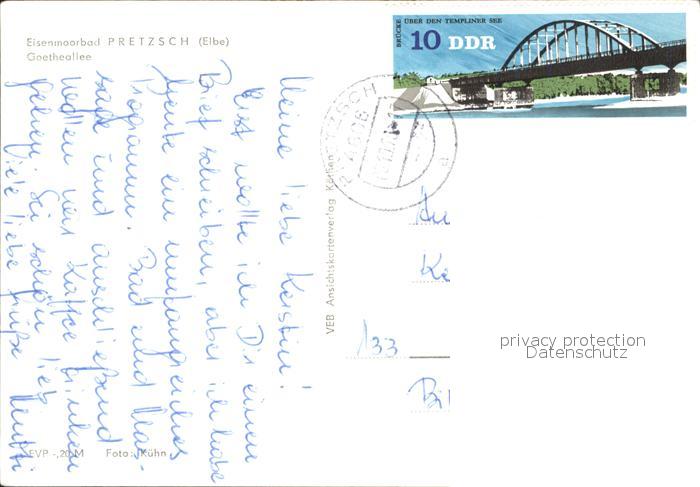 Eisenmoorbad PRETZSCH (Elbe)
Goetheallee
Meine liebe Kerstin!
Erst wollte ich Dir einen
Brief schreiben, aber ich habe
heute ein umfangreiches
Programm. Bad und Mas-
sage und anschließend
wollen wir Kaffee trinken
gehen. Sei schön lieb
Viele liebe Grüße Mutti
EVP -,20 M Foto: Kühn
VEB Ansichtskartenverlag Köthen
BRÜCKE ÜBER DEN TEMPLINER SEE
10 DDR
PRETZSCH
133
privacy protection
Datenschutz